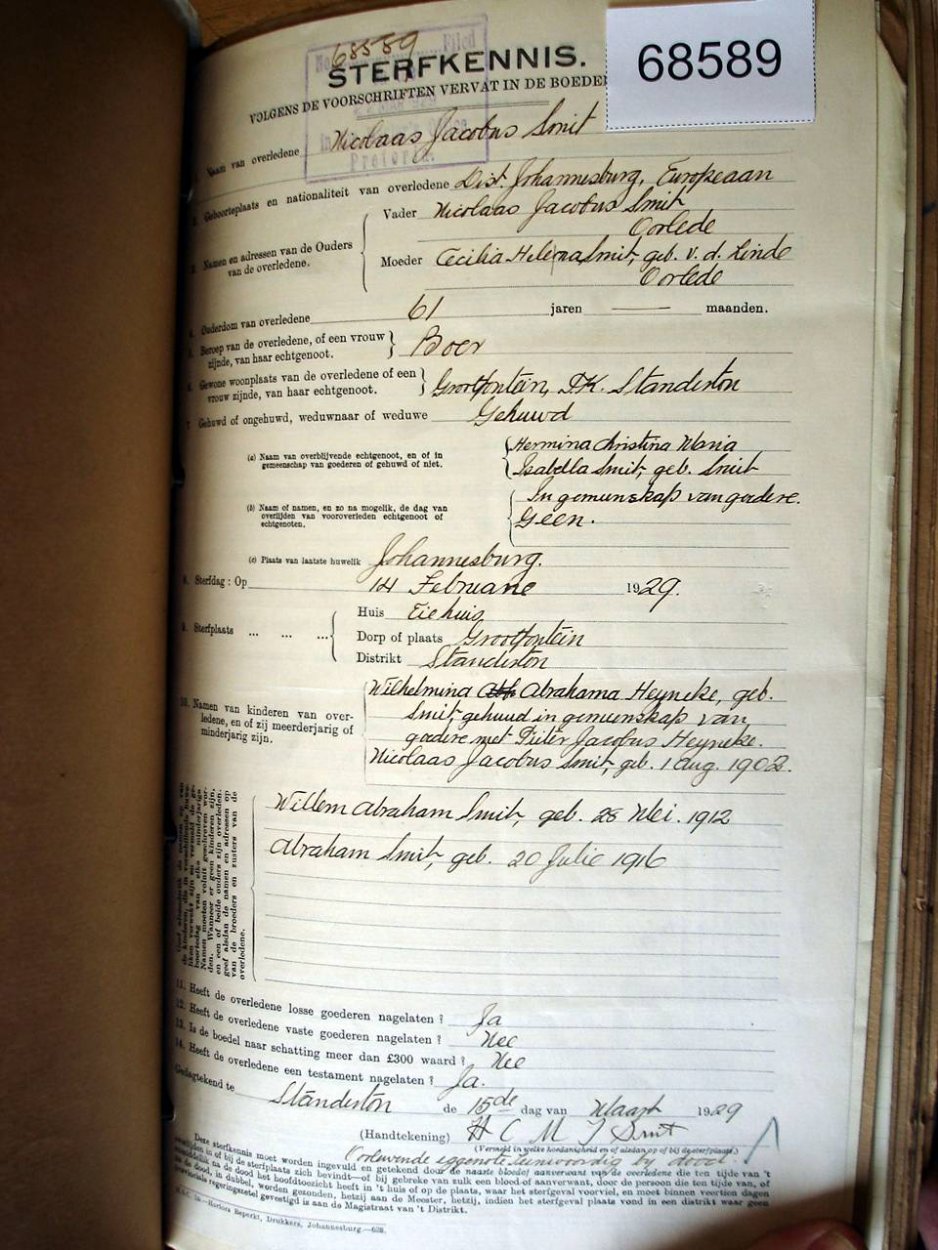 68589
68589 Filed
STERFKENNIS.
VOLGENS DE VOORSCHRIFTEN VERVAT IN DE BOEDEL
Pretoria.
Naam van overledene Nicolaas Jacobus Smit
Geboorteplaats en nationaliteit van overledene Dist. Johannesburg, Europeaan
3. Namen en adressen van de Ouders van de overledene.
Vader Nicolaas Jacobus Smit
Oorlede
Moeder Cecilia Helena Smit, geb. v. d. Linde
Oorlede
4. Ouderdom van overledene 61 jaren — maanden.
5. Beroep van de overledene, of een vrouw
zijnde, van haar echtgenoot. Boer
6. Gewone woonplaats van de overledene of een
vrouw zijnde, van haar echtgenoot. Grootfontein, P.K. Standerton
7. Gehuwd of ongehuwd, weduwnaar of weduwe Gehuwd
(a) Naam van overblijvende echtgenoot, en of in
gemeenschap van goederen of gehuwd of niet.
Hermina Christina Maria
Isabella Smit, geb. Smit
In gemeenskap van goedere.
(b) Naam of namen, en zo na mogelik, de dag van
overlijden van vooroverleden echtgenoot of
echtgenoten.
Geen.
(c) Plaats van laatste huwelik Johannesburg.
8. Sterfdag : Op 14 Februarie 1929.
9. Sterfplaats ... ... ...
Huis
Dorp of plaats Grootfontein
Distrikt Standerton
10. Namen van kinderen van over-
ledene, en of zij meerderjarig of
minderjarig zijn.
Wilhelmina Abrahama Heyneke, geb.
Smit, gehuud in gemeenskap van
goedere met Pieter Jacobus Heyneke.
Nicolaas Jacobus Smit, geb. 1 Aug. 1902.
Willem Abraham Smit, geb. 28 Mei. 1912
Abraham Smit, geb. 20 Julie 1916
Namen moeten voluit geschreven wor-
den. Wanneer er geen kinderen zijn,
en een of beide ouders zijn overleden,
geef alsdan de namen en adressen op
van de broeders en zusters van de
overledene.
11. Heeft de overledene losse goederen nagelaten ? Ja
12. Heeft de overledene vaste goederen nagelaten ? Nee
13. Is de boedel naar schatting meer dan £300 waard ? Nee
14. Heeft de overledene een testament nagelaten ? Ja.
Gedagtekend te Standerton de 15de dag van Maart 1929
(Handtekening) H C M I Smit
(Vermeld in welke hoedanigheid en of alsdan op of bij de sterfplaats.)
Deze sterfkennis moet worden ingevuld en getekend door de naaste bloedaanverwant van de overledene die ten tijde van 't
overlijden in of bij de sterfplaats zich bevindt—of bij gebreke van zulk een bloed of aanverwant, door de persoon die ten tijde van, of
onmiddellik na de dood het hoofdtoezicht heeft in 't huis of op de plaats, waar het sterfgeval voorviel, en moet binnen veertien dagen
na de dood, in dubbel, worden gezonden, hetzij aan de Meester, hetzij, indien het sterfgeval plaats vond in een distrikt waar geen
provinciale regeringszetel gevestigd is aan de Magistraat van 't Distrikt.
Hortors Beperkt, Drukkers, Johannesburg.